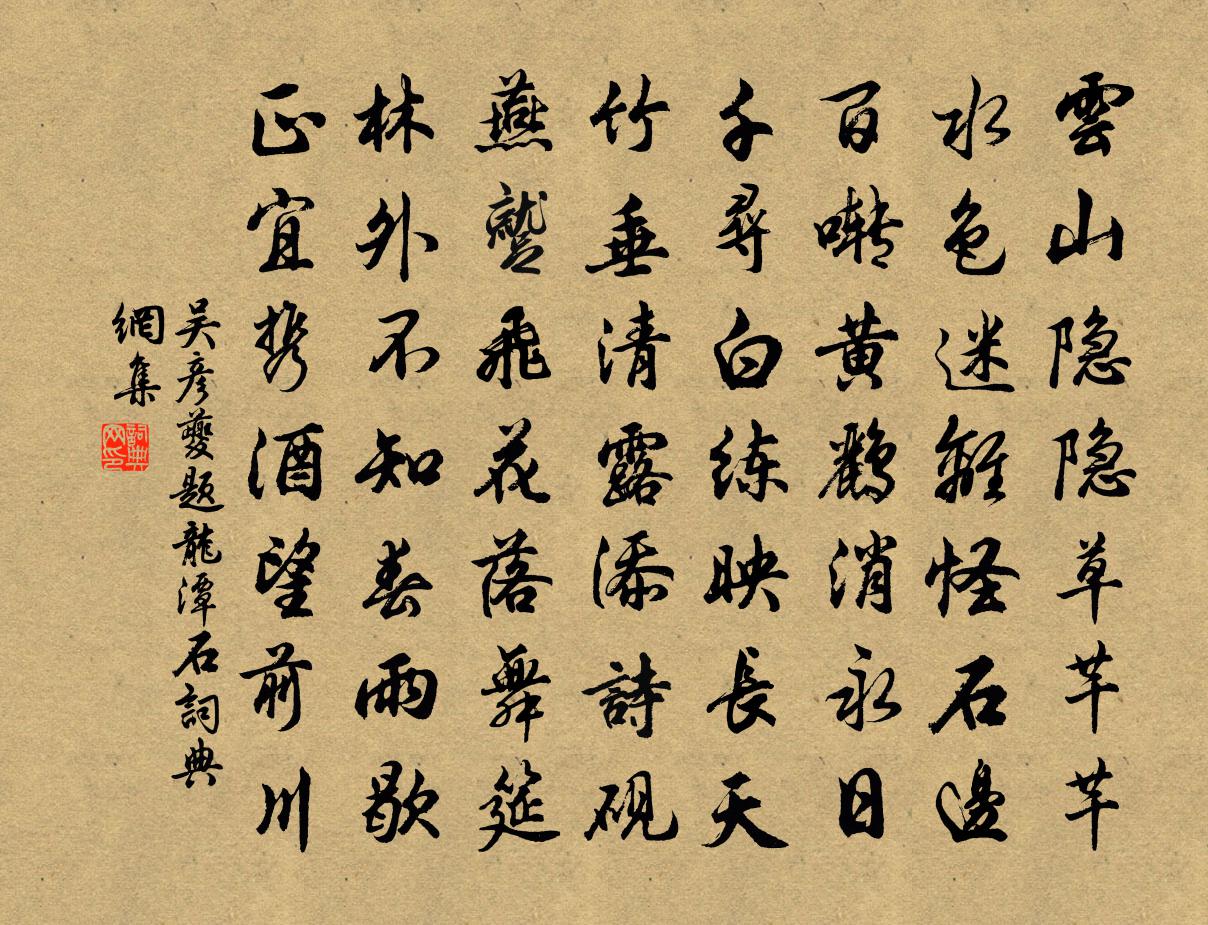 雲山隐隐草芊芊
水色迷離怪石邊
百囀黄鸝消永日
千尋白练映長天
竹垂清露添詩砚
燕蹴飛花落舞筵
林外不知春雨歇
正宜携酒望前川
吴彦夔题龍潭石詞典
網集
詞典网印